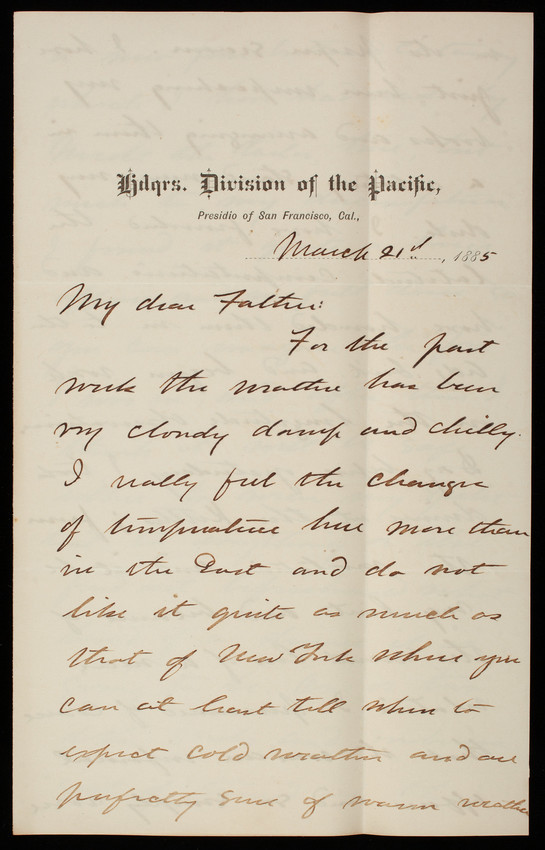 Hdqrs. Division of the Pacific,
Presidio of San Francisco, Cal.,
March 21st, 1885
My dear Father:
For the past
week the weather has been
very cloudy damp and chilly.
I really feel the change
of temperature here more than
in the East and do not
like it quite as much as
that of New York where you
can at least tell when to
expect cold weather and are
perfectly sure of warm weather